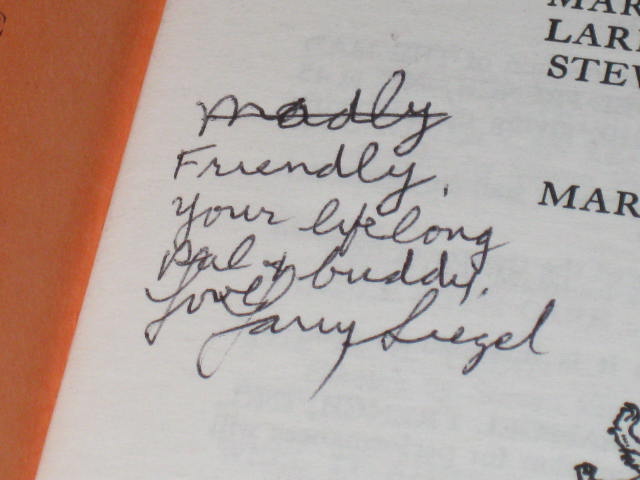 MAR
LARR
STEV
Madly
Friendly,
Your lifelong
pal & buddy,
Love,
Larry Siegel
MAR